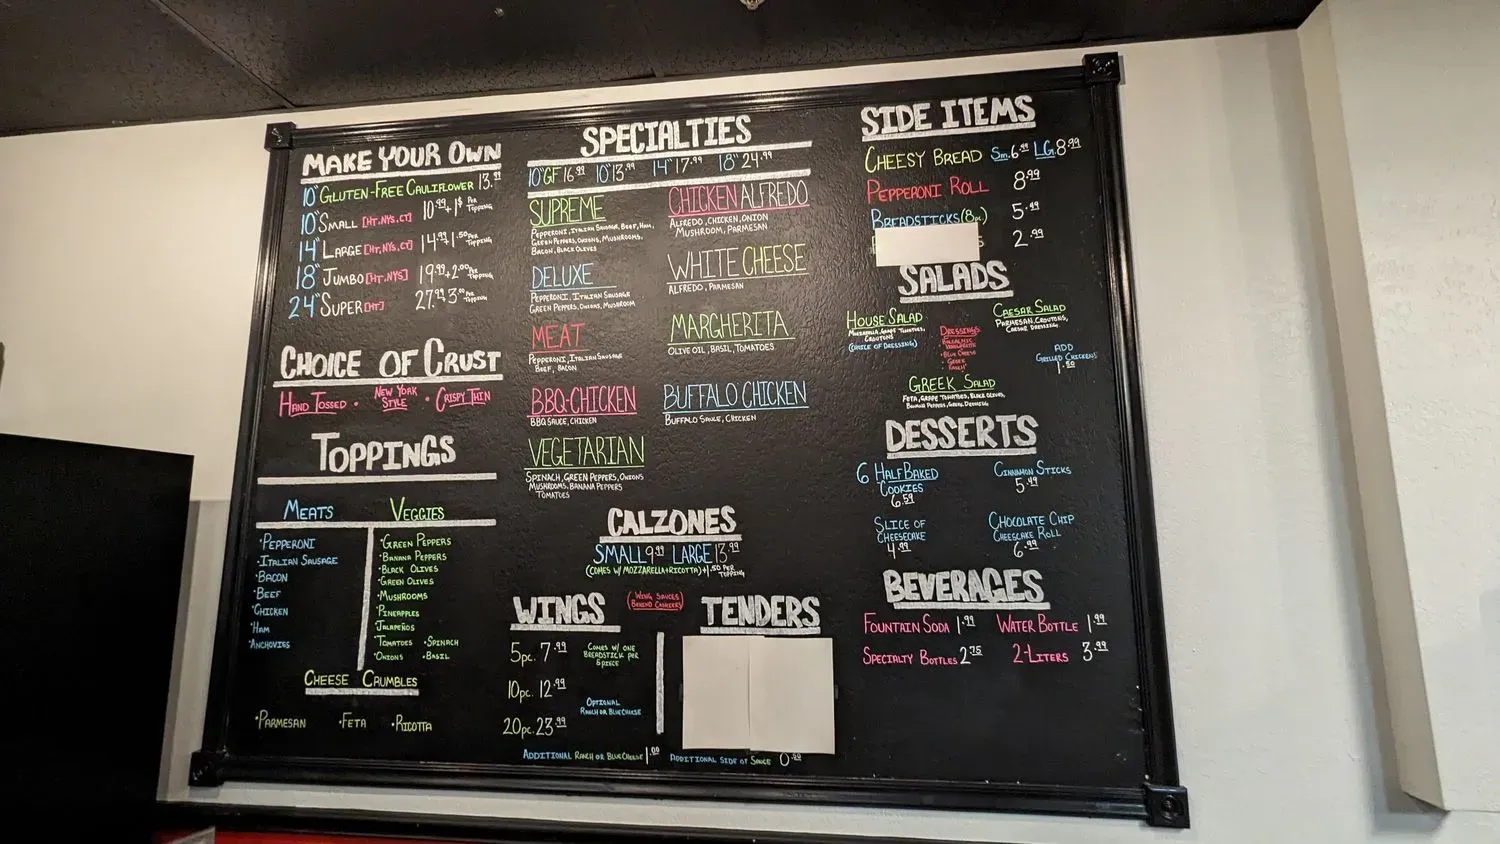 MAKE YOUR OWN
10" GLUTEN-FREE CAULIFLOWER 13.99
10" SMALL [HT,NYS,CT] 10.99 + 1$ PER TOPPING
14" LARGE [HT,NYS,CT] 14.99 + 1.50 PER TOPPING
18" JUMBO [HT,NYS] 19.99 + 2.00 PER TOPPING
24" SUPER [HT] 27.99 3.00 PER TOPPING
CHOICE OF CRUST
HAND TOSSED • NEW YORK STYLE • CRISPY THIN
TOPPINGS
MEATS
•PEPPERONI
•ITALIAN SAUSAGE
•BACON
•BEEF
•CHICKEN
•HAM
•ANCHOVIES
VEGGIES
•GREEN PEPPERS
•BANANA PEPPERS
•BLACK OLIVES
•GREEN OLIVES
•MUSHROOMS
•PINEAPPLES
•JALAPEÑOS
•TOMATOES •SPINACH
•ONIONS •BASIL
CHEESE CRUMBLES
•PARMESAN •FETA •RICOTTA
SPECIALTIES
10" GF 16.99 10" 13.99 14" 17.99 18" 24.99
SUPREME
PEPPERONI, ITALIAN SAUSAGE, BEEF, HAM,
GREEN PEPPERS, ONIONS, MUSHROOMS,
BACON, BLACK OLIVES
DELUXE
PEPPERONI, ITALIAN SAUSAGE
GREEN PEPPERS, ONIONS, MUSHROOM
MEAT
PEPPERONI, ITALIAN SAUSAGE
BEEF, BACON
BBQ-CHICKEN
BBQ SAUCE, CHICKEN
VEGETARIAN
SPINACH, GREEN PEPPERS, ONIONS
MUSHROOMS, BANANA PEPPERS
TOMATOES
CHICKEN ALFREDO
ALFREDO, CHICKEN, ONION
MUSHROOM, PARMESAN
WHITE CHEESE
ALFREDO, PARMESAN
MARGHERITA
OLIVE OIL, BASIL, TOMATOES
BUFFALO CHICKEN
BUFFALO SAUCE, CHICKEN
CALZONES
SMALL 9.99 LARGE 13.99
(COMES W/ MOZZARELLA+RICOTTA)+1.50 PER TOPPING
WINGS
(WING SAUCES
BEHIND COUNTER)
5pc. 7.99
COMES W/ ONE
BREADSTICK PER
5 PIECE
10pc. 12.99
OPTIONAL
RANCH OR BLUE CHEESE
20pc. 23.99
ADDITIONAL RANCH OR BLUE CHEESE 1.00
TENDERS
ADDITIONAL SIDE OF SAUCE 0.50
SIDE ITEMS
CHEESY BREAD Sm. 6.99 LG. 8.99
PEPPERONI ROLL 8.99
BREADSTICKS (8pc.) 5.49
2.99
SALADS
HOUSE SALAD
MOZZARELLA, GRAPE TOMATOES,
CROUTONS
(CHOICE OF DRESSING)
DRESSINGS
BALSAMIC
VINAIGRETTE
•BLUE CHEESE
•GREEK
RANCH
CAESAR SALAD
PARMESAN, CROUTONS,
CAESAR DRESSING
ADD
GRILLED CHICKEN
1.50
GREEK SALAD
FETA, GRAPE TOMATOES, BLACK OLIVES,
BANANA PEPPERS, GREEK DRESSING
DESSERTS
6 HALF BAKED
COOKIES
6.59
CINNAMON STICKS
5.49
SLICE OF
CHEESECAKE
4.99
CHOCOLATE CHIP
CHEESECAKE ROLL
6.99
BEVERAGES
FOUNTAIN SODA 1.99 WATER BOTTLE 1.99
SPECIALTY BOTTLES 2.75 2-LITERS 3.99